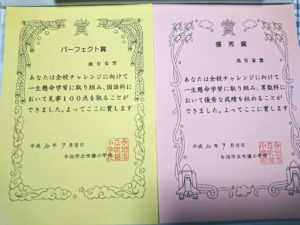 賞
パーフェクト賞
あなたは全校チャレンジに向けて
一生懸命学習に取り組み、国語科に
おいて見事100点を取ることが
できました。よってここに賞します
平成 年 7月吉日
今治市立吹揚小学校
賞
優秀賞
あなたは全校チャレンジに向けて
一生懸命学習に取り組み、算数科に
おいて優秀な成績を収めることが
できました。よってここに賞します
平成 年 7月吉日
今治市立吹揚小学校